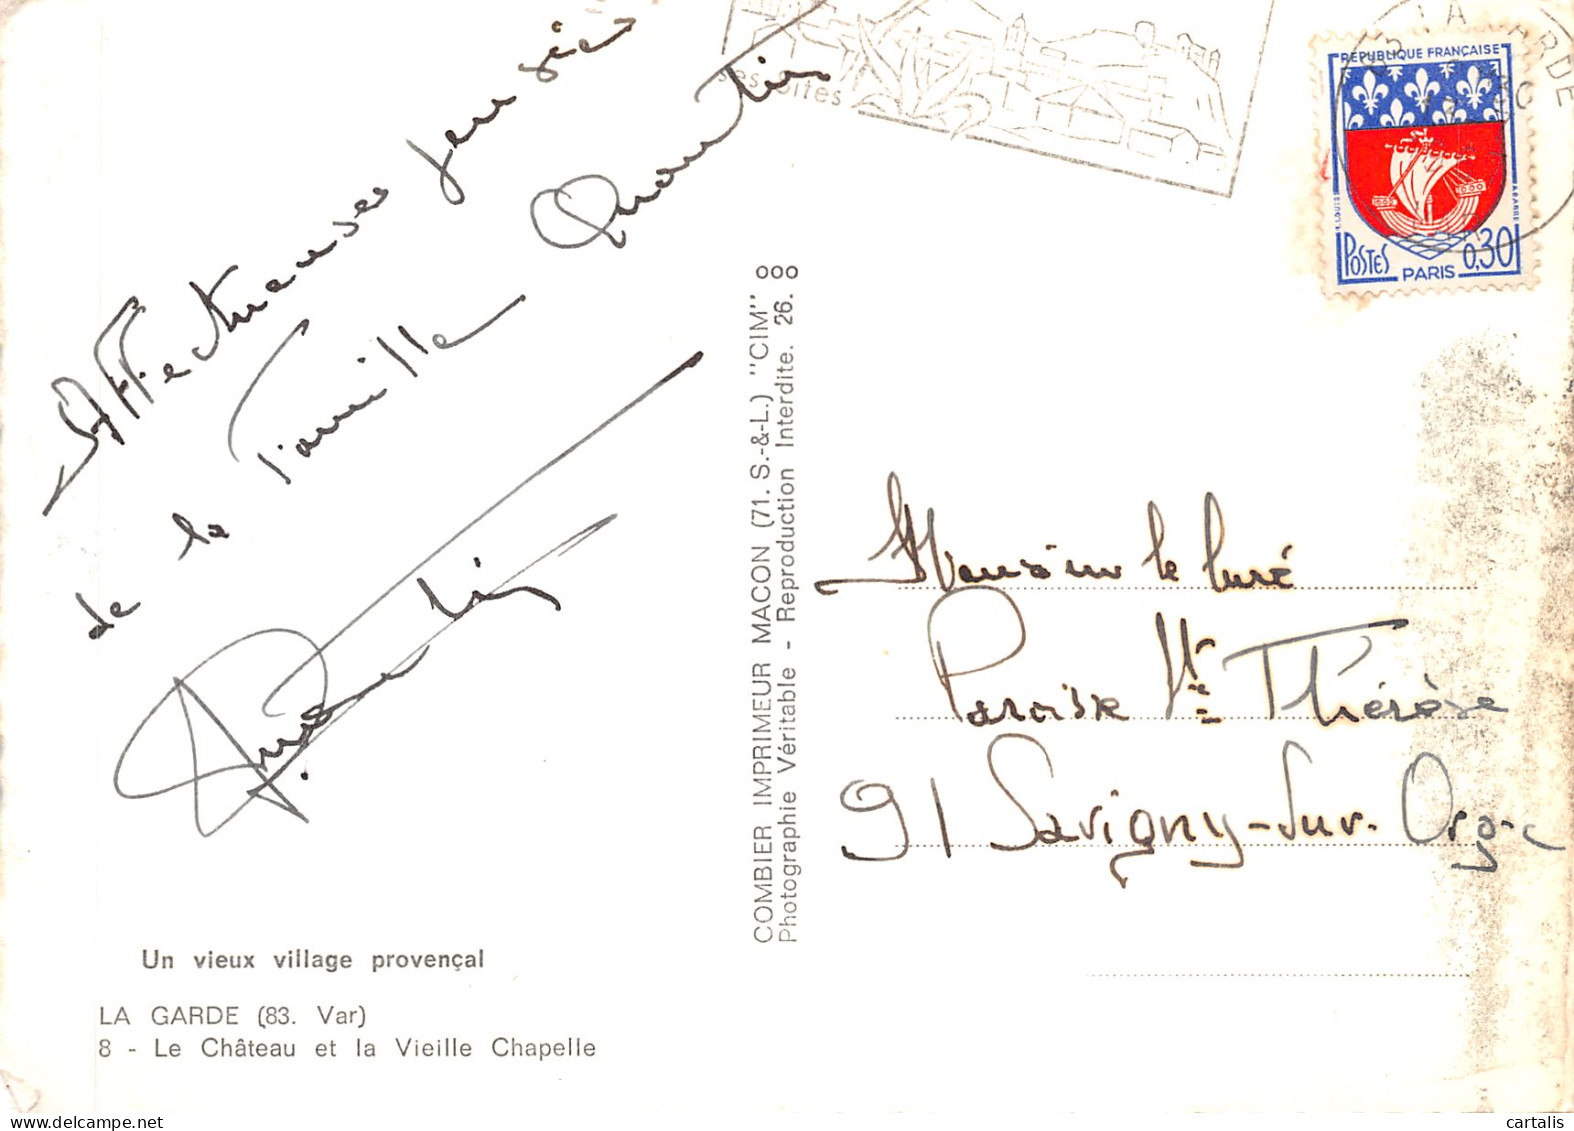 Affectueuses pensées
de la Famille Quantin
ses sites
LA GARDE
REPUBLIQUE FRANÇAISE
POSTES
0,30
PARIS
COMBIER IMPRIMEUR MACON (71. S.-&-L.) "CIM"
Photographie Véritable - Reproduction Interdite. 26.
Monsieur le Curé
Paroisse Ste Thérèse
91 Savigny-Sur-Orge
Un vieux village provençal
LA GARDE (83. Var)
8 - Le Château et la Vieille Chapelle
cartalis